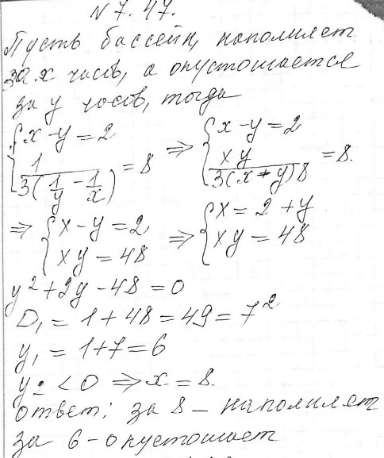 N 7.47.
Пусть бассейн, наполняет
за x часов, а опустошается
за y часов, тогда
{x - y = 2 {x - y = 2
{1/(3(1/y - 1/x)) = 8 ⇒ {xy/(3(x + y)8 = 8.
⇒ {x - y = 2 ⇒ {x = 2 + y
{xy = 48 {xy = 48
y² + 2y - 48 = 0
D₁ = 1 + 48 = 49 = 7²
y₁ = 1 + 7 = 6
y₂ < 0 ⇒ x = 8.
ответ: за 8 - наполняет
за 6 - опустошает